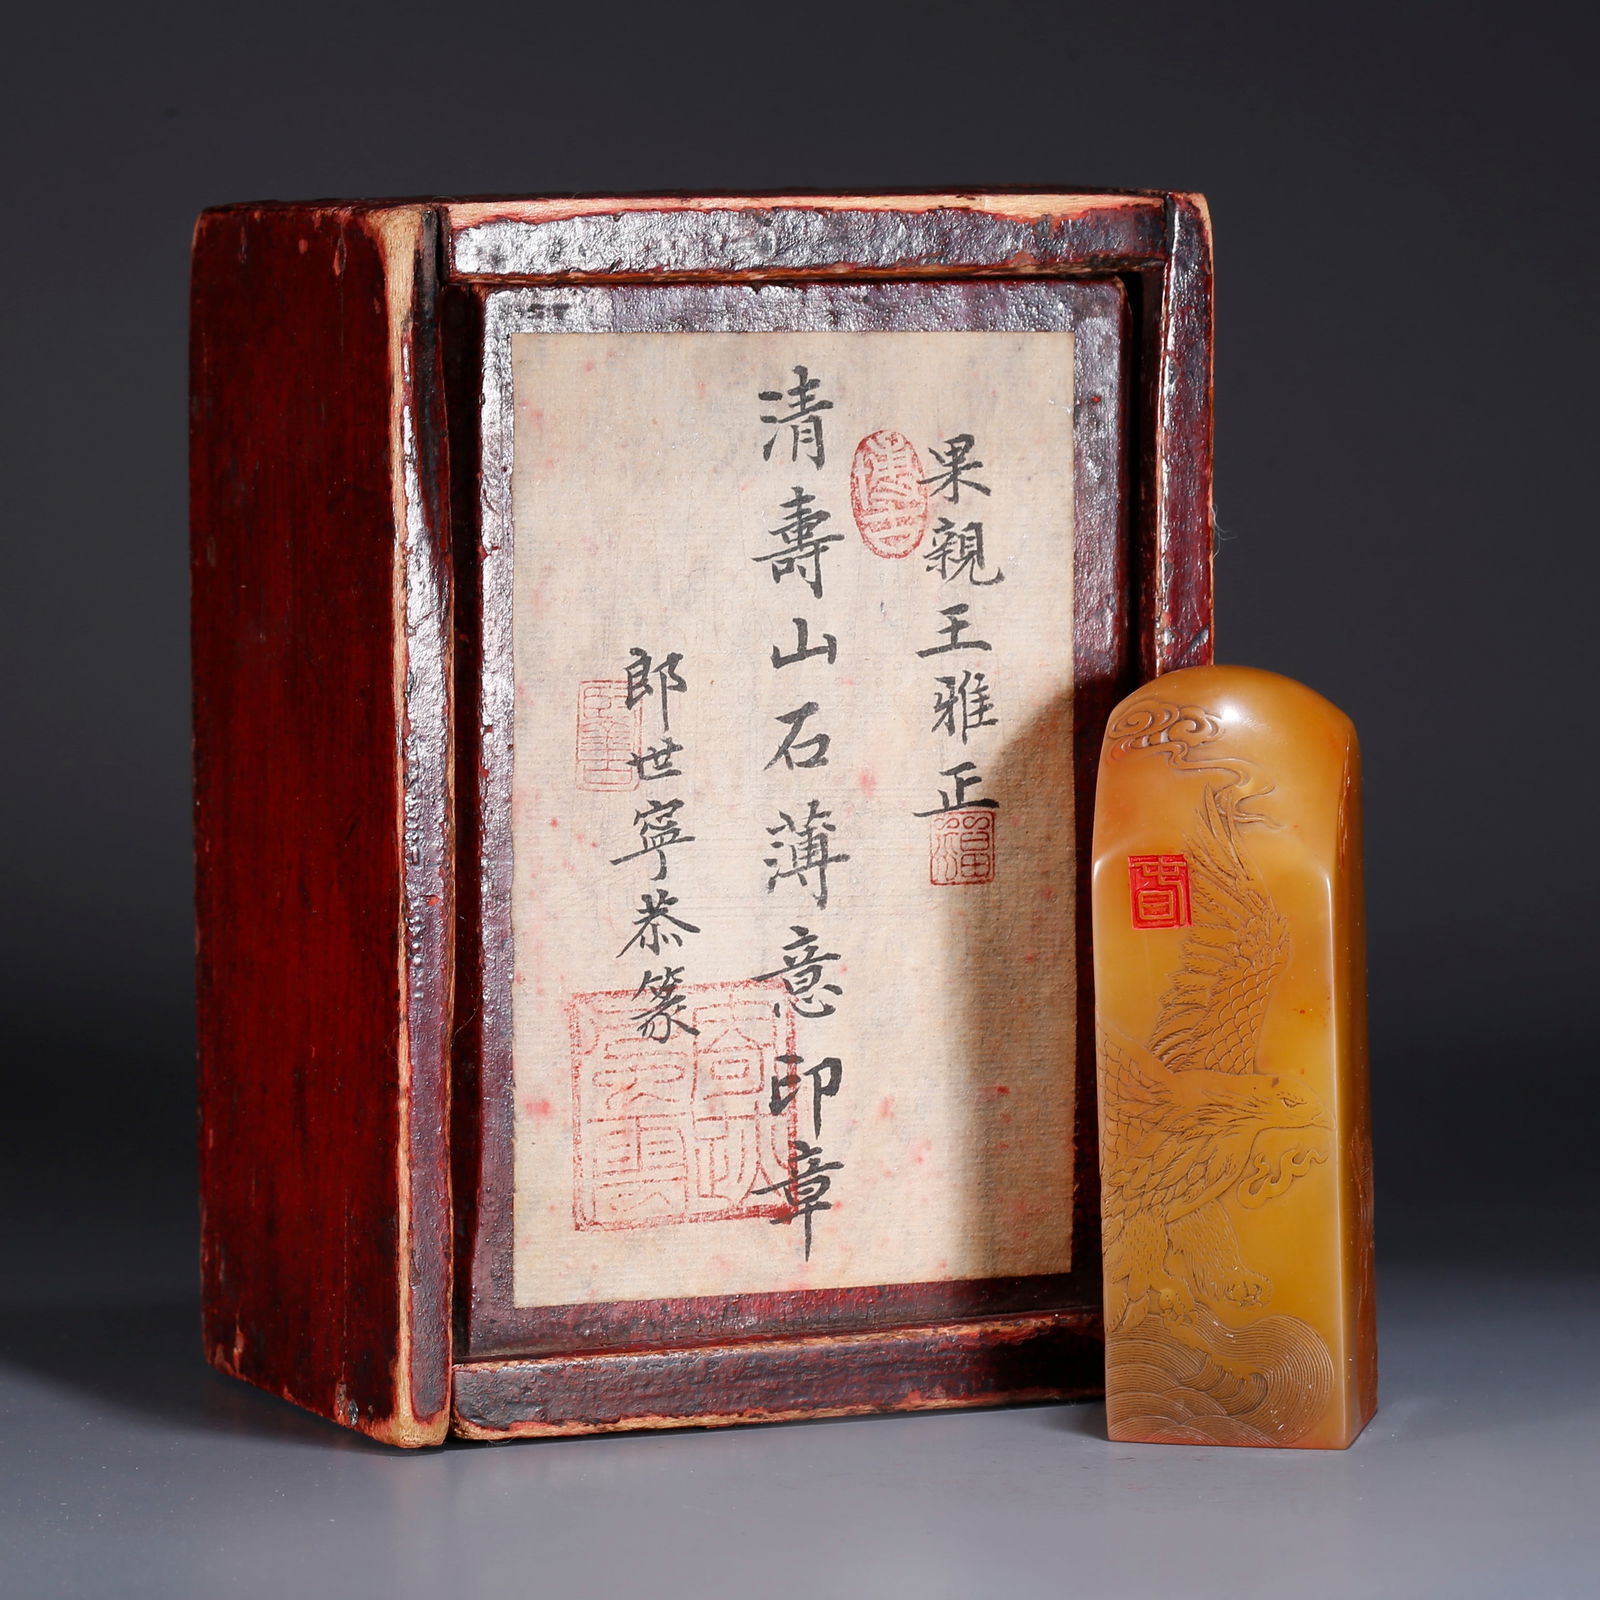 果親王雅正
清壽山石薄意印章
郎世寧恭篆